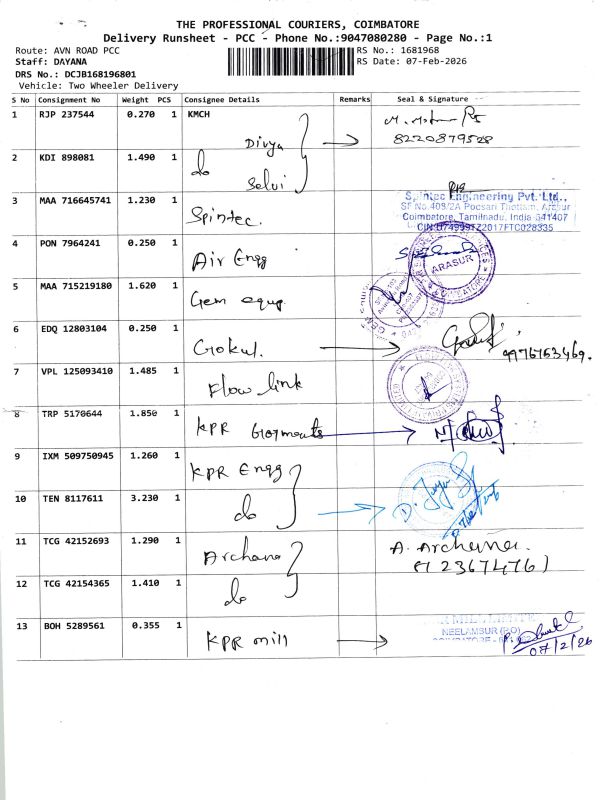 THE PROFESSIONAL COURIERS, COIMBATORE
Delivery Runsheet - PCC - Phone No.:9047080280 - Page No.:1
Route: AVN ROAD PCC
RS No.: 1681968
Staff: DAYANA
RS Date: 07-Feb-2026
DRS No.: DCJB168196801
Vehicle: Two Wheeler Delivery
S No Consignment No Weight PCS Consignee Details Remarks Seal & Signature
1 RJP 237544 0.270 1 KMCH
Divya
8220879528
2 KDI 898081 1.490 1 do
Selvi
3 MAA 716645741 1.230 1 Spintec.
Spintec Engineering Pvt. Ltd.,
SF No.409/2A Poosari Thottam, Arasur
Coimbatore, Tamilnadu, India-641407
CIN:U74999TZ2017FTC028335
4 PON 7964241 0.250 1 Air Engg
ARASUR
5 MAA 715219180 1.620 1 Gem equp.
6 EDQ 12803104 0.250 1 Gokul.
9976753469.
7 VPL 125093410 1.485 1 Flow link
8 TRP 5170644 1.850 1 KPR Garments
9 IXM 509750945 1.260 1 KPR Engg
10 TEN 8117611 3.230 1 do
11 TCG 42152693 1.290 1 Archana
A. Archana.
12 TCG 42154365 1.410 1 do
13 BOH 5289561 0.355 1 KPR mill
NEELAMBUR (P.O)
07/2/26